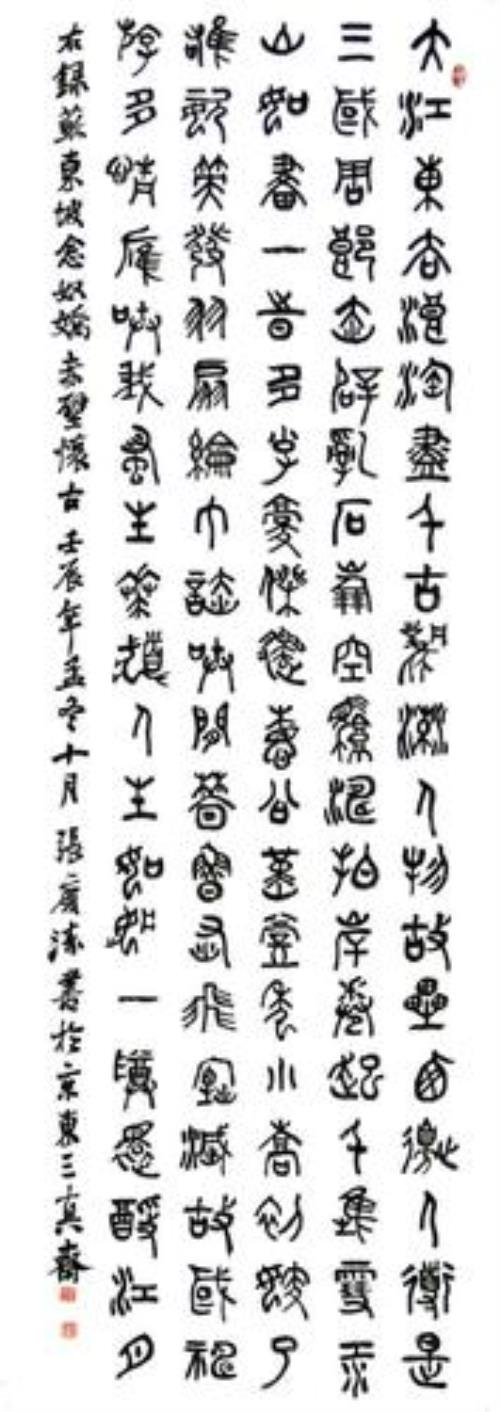 大江東去浪淘盡千古風流人物故壘西邊人道是
三國周郎赤壁亂石崩空驚濤拍岸卷起千堆雪江
山如畫一時多少豪傑遙想公瑾當年小喬初嫁了
雄姿英發羽扇綸巾談笑間檣櫓灰飛煙滅故國神
游多情應笑我早生華髮人生如夢一尊還酹江月
右録蘇東坡念奴嬌赤壁懷古 壬辰年孟冬十月 張 書於京東三真齋